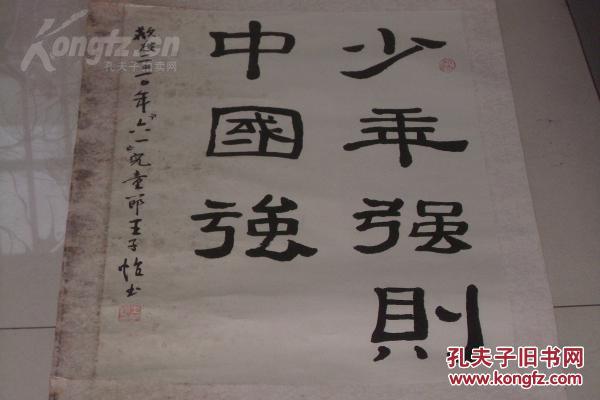 少年强则
中國強
敬贺二〇一〇年六一儿童节王子怡书
Kongfz.cn
孔夫子拍卖网
孔夫子旧书网
www.kongfz.com